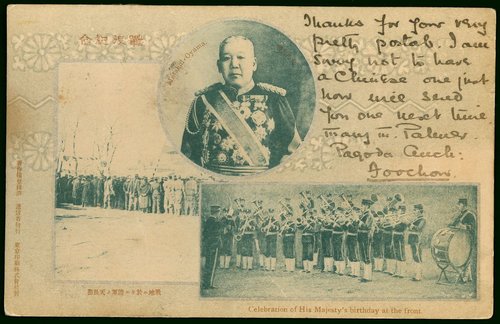 戰役紀念
Marshal Oyama.
Thanks for your very
pretty postcd. I am
sorry not to have
a Chinese one just
now will send
you one next time
Palmer
Pagoda Anch:
Foochow.
逓信省發行
戰地ニ於ケル ノ天長節
Celebration of His Majesty's birthday at the front